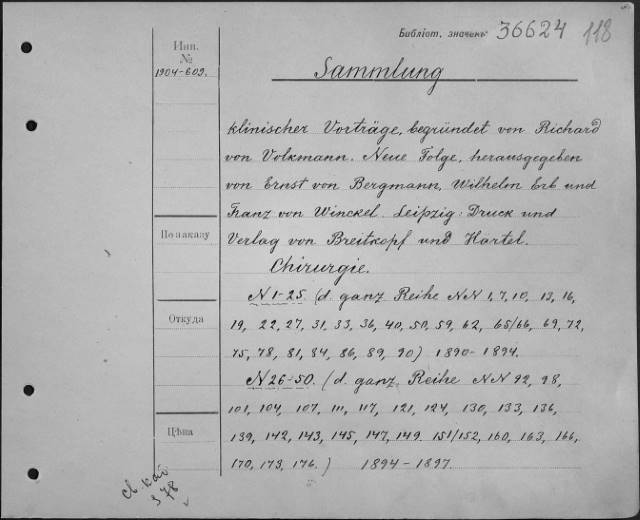 Библіот. значекъ 36624 118
Инв.
№
1904-609.
Sammlung
klinischer Vorträge, begründet von Richard
von Volkmann. Neue Folge, herausgegeben
von Ernst von Bergmann, Wilhelm Erb und
Franz von Winckel. Leipzig: Druck und
Verlag von Breitkopf und Härtel.
По заказу
Chirurgie.
N 1-25. (d. ganz Reihe NN 1, 7, 10, 13, 16,
Откуда
19, 22, 27, 31, 33, 36, 40, 50, 59, 62, 65/66, 69, 72,
75, 78, 81, 84, 86, 89, 90) 1890-1894.
N 26-50. (d. ganz. Reihe NN 92, 98,
101, 104, 107, 111, 117, 121, 124, 130, 133, 136,
Цѣна
139, 142, 143, 145, 147, 149. 151/152, 160, 163, 166,
170, 173, 176.) 1894-1897.
378